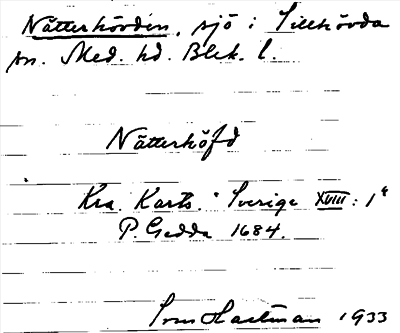 Nätterhövden, sjö i Sillhövda
sn. Med. hd. Blek. l.
Nätterhöfd
Kra. Kart. Sverige XVIII: 1
P. Gedda 1684.
Sven Hartman 1933